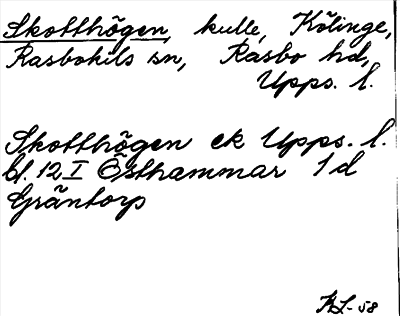 Skotthögen, kulle, Kölinge,
Rasbokils sn, Rasbo hd,
Upps. l.
Skotthögen ek Upps. l.
bl. 12 I Östhammar 1 d
Gräntorp
KL-58